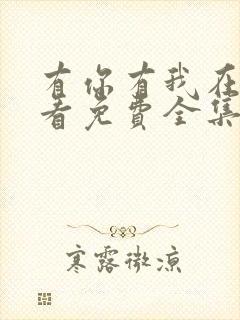 有你有我在
看免费全集
寒露微凉